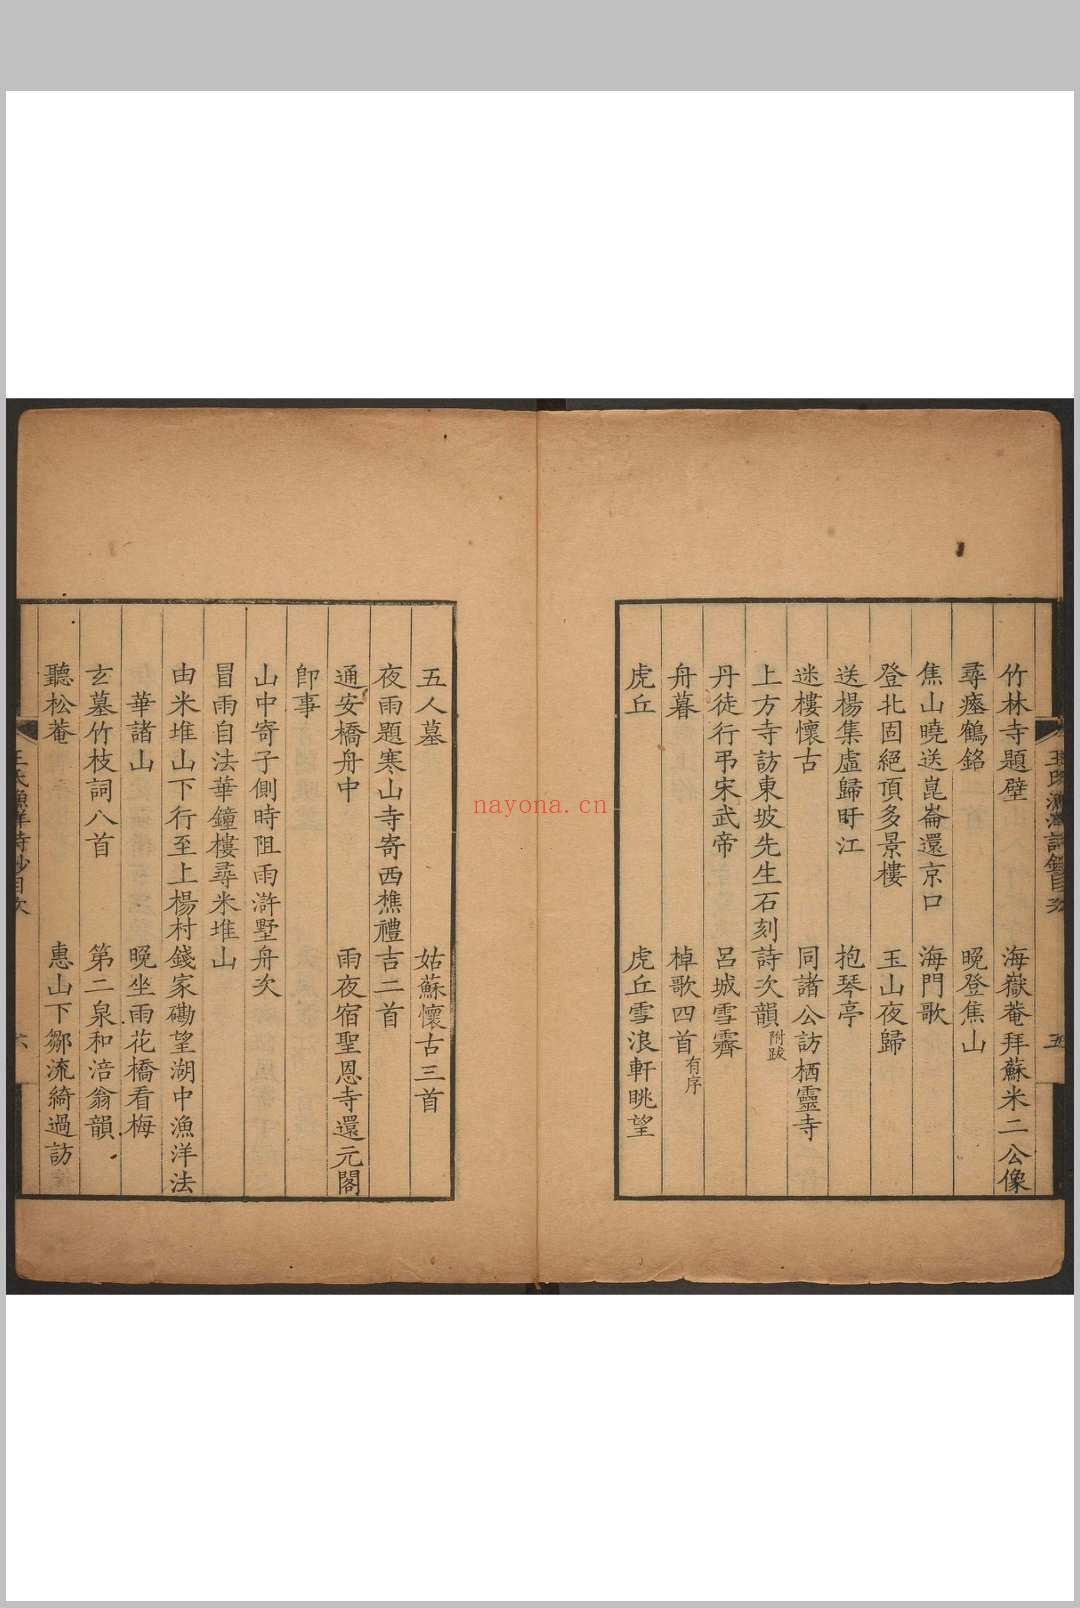 竹林寺題壁　海嶽菴拜蘇米二公像
尋瘞鶴銘　晚登焦山
焦山曉送崑崙還京口　海門歌
登北固絕頂多景樓　玉山夜歸
送楊集虛歸盱江　抱琴亭
迷樓懷古　同諸公訪栖靈寺
上方寺訪東坡先生石刻詩次韻附跋
丹徒行弔宋武帝　呂城雪霽
舟暮　棹歌四首有序
虎丘　虎丘雪浪軒眺望
五人墓　姑蘇懷古三首
夜雨題寒山寺寄西樵禮吉二首
通安橋舟中　雨夜宿聖恩寺還元閣
卽事
山中寄子側時阻雨滸墅舟次
冒雨自法華鐘樓尋米堆山
由米堆山下行至上楊村錢家磡望湖中漁洋法
華諸山　晚坐雨花橋看梅
玄墓竹枝詞八首　第二泉和涪翁韻
聽松菴　惠山下鄒流綺過訪
王氏漁洋詩鈔目次　六
nayona.cn